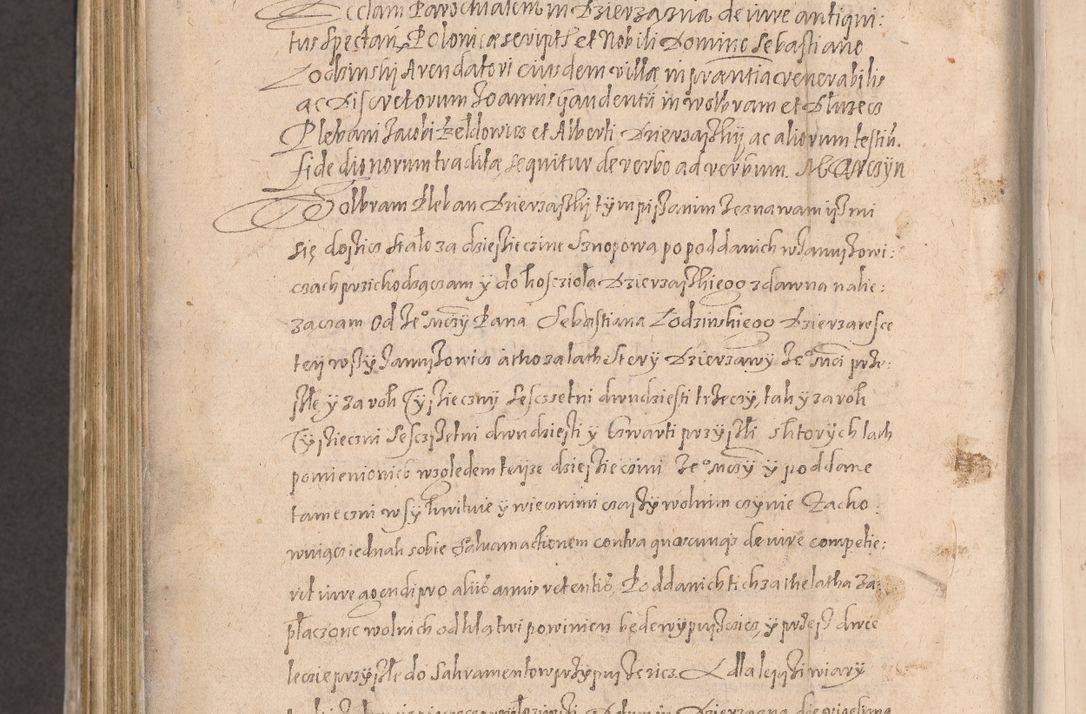 Ecclam Parochialem in Dzierzazna de iure antiqui:
tus spectan Polonicæ script et Nobili Domino Sebastiano
Lodzinskij Arendatori eiusdem villæ in præntia venerabilis
ac Discretorum Joannis Gaudentii in Wolbram et Dluzecz
Plebani Jacobi Keldowicz et Alberti Dzierzaskij ac aliorum testiu.
fide dignorum tradita sequitur de verbo ad verbum. Marczyn
Wolbram Pleban Dzierzaskij tym pisanim zeznawam isz mi
się dosicz stało za dziesiecine snopowa po poddanich w Januszowi:
czach przichodzaczam y do koscziola Dzierzaskiego zdawna nalie:
zaczam Od Je° Mczy Pana Sebastiana Lodzinskiego Dzierzawce
tey wsy Januszowicz a tho za lath stery Dzierzawy Je° Mci prze:
szłę y za rok Tysieczny seszczsetni dwudziesti trzeczy, tak y za rok
Tysieczni Sesczsetni dwudziesti y czwarti przyszli z ktorych lath
pomienionich wzgledem teysze dziesiecini Je° Mczy y poddane
tameczni wsy kwituie y wiecznimi czasy wolnim czynie Zacho:
wuiącz iednak sobie saluam actionem contra quoscunqs de iure competie:
rit iure agendi pro aliis annis retentis, Poddanich tich za the latha za:
płaczone wolnich od klatwi powinien będe wypusczicz, y przesz dwie
leczie przyszłe do Sakramentow przypuszczicz. A dla lepszi wiary